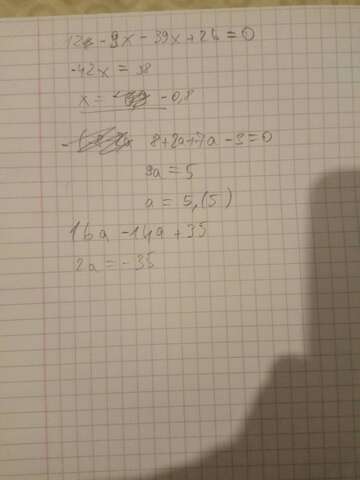 12 - 9x - 39x + 26 = 0
-42x = 38
x = -0,8
8+2a+7a-3=0
9a = 5
a = 5,(5)
16a - 14a + 35
2a = -35